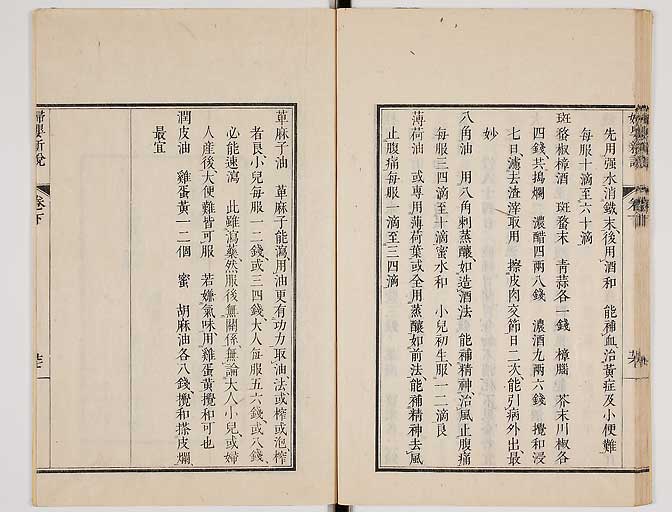 先用强水消鐵末後用酒和　能補血治黃症及小便難
每服十滴至六十滴
斑蝥椒樟酒　斑蝥末　青蒜各一錢　樟腦　芥末川椒各
四錢共搗爛　濃醋四兩八錢　濃酒九兩六錢　攪和浸
七日濾去渣滓取用　擦皮肉交節日二次能引病外出最
妙
八角油　用八角刺蒸釀如造酒法　能補精神治風止腹痛
每服三四滴至十滴蜜水和　小兒初生服一二滴良
薄荷油　或專用薄荷葉或全用蒸釀如前法能補精神去風
止腹痛每服一滴至三四滴
萆麻子油　萆麻子能瀉用油更有功力取油法或榨或泡榨
者良小兒每服一二錢或三四錢大人每服五六錢或八錢
必能速瀉　此雖瀉藥然服後無關係無論大人小兒或婦
人產後大便難皆可服　若嫌氣味用雞蛋黃攪和可也
潤皮油　雞蛋黃一二個　蜜　胡麻油各八錢攪和搽皮爛
最宜
婦嬰新說
卷下